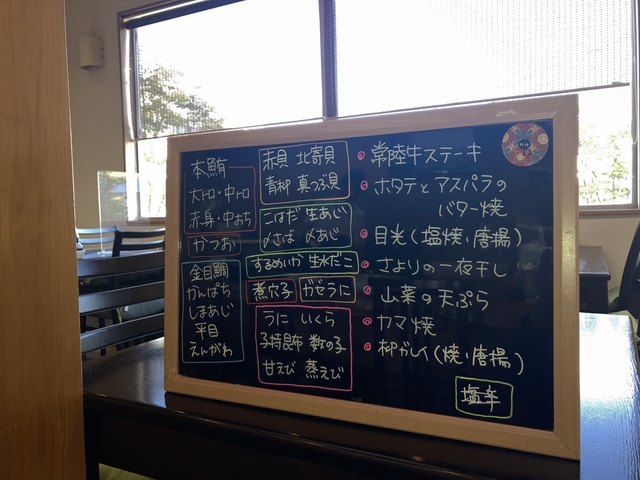 本鮪
大トロ・中トロ
赤身・中おち
かつお
金目鯛
かんぱち
しまあじ
平目
えんがわ
赤貝 北寄貝
青柳 真つぶ貝
こはだ 生あじ
〆さば 〆あじ
するめいか 生水だこ
煮穴子
ガゼうに
うに いくら
子持昆布 数の子
甘えび 蒸えび
常陸牛ステーキ
ホタテとアスパラの
バター焼
目光(塩焼・唐揚)
さよりの一夜干し
山菜の天ぷら
カマ焼
柳ガレイ(焼・唐揚)
塩辛